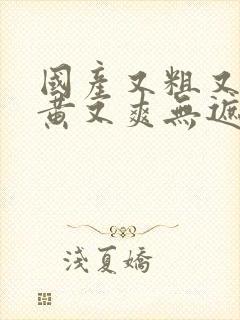 國產又粗又
黃又爽無遮
淺夏嬌